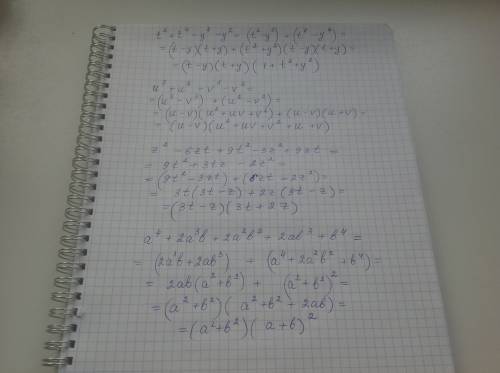 t² + t⁴ - y² - y⁴ = (t² - y²) + (t⁴ - y⁴) =
= (t - y)(t + y) + (t² + y²)(t - y)(t + y) =
= (t - y)(t + y)(1 + t² + y²)
u³ + u² - v³ - v² =
= (u³ - v³) + (u² - v²) =
= (u - v)(u² + uv + v²) + (u - v)(u + v) =
= (u - v)(u² + uv + v² + u + v)
z² - 6zt + 9t² - 3z² + 9zt =
= 9t² + 3tz - 2z² =
= (9t² - 3zt) + (6zt - 2z²) =
= 3t(3t - z) + 2z(3t - z) =
= (3t - z)(3t + 2z)
a⁴ + 2a³b + 2a²b² + 2ab³ + b⁴ =
= (2a³b + 2ab³) + (a⁴ + 2a²b² + b⁴) =
= 2ab(a² + b²) + (a² + b²)² =
= (a² + b²)(a² + b² + 2ab) =
= (a² + b²)(a + b)²